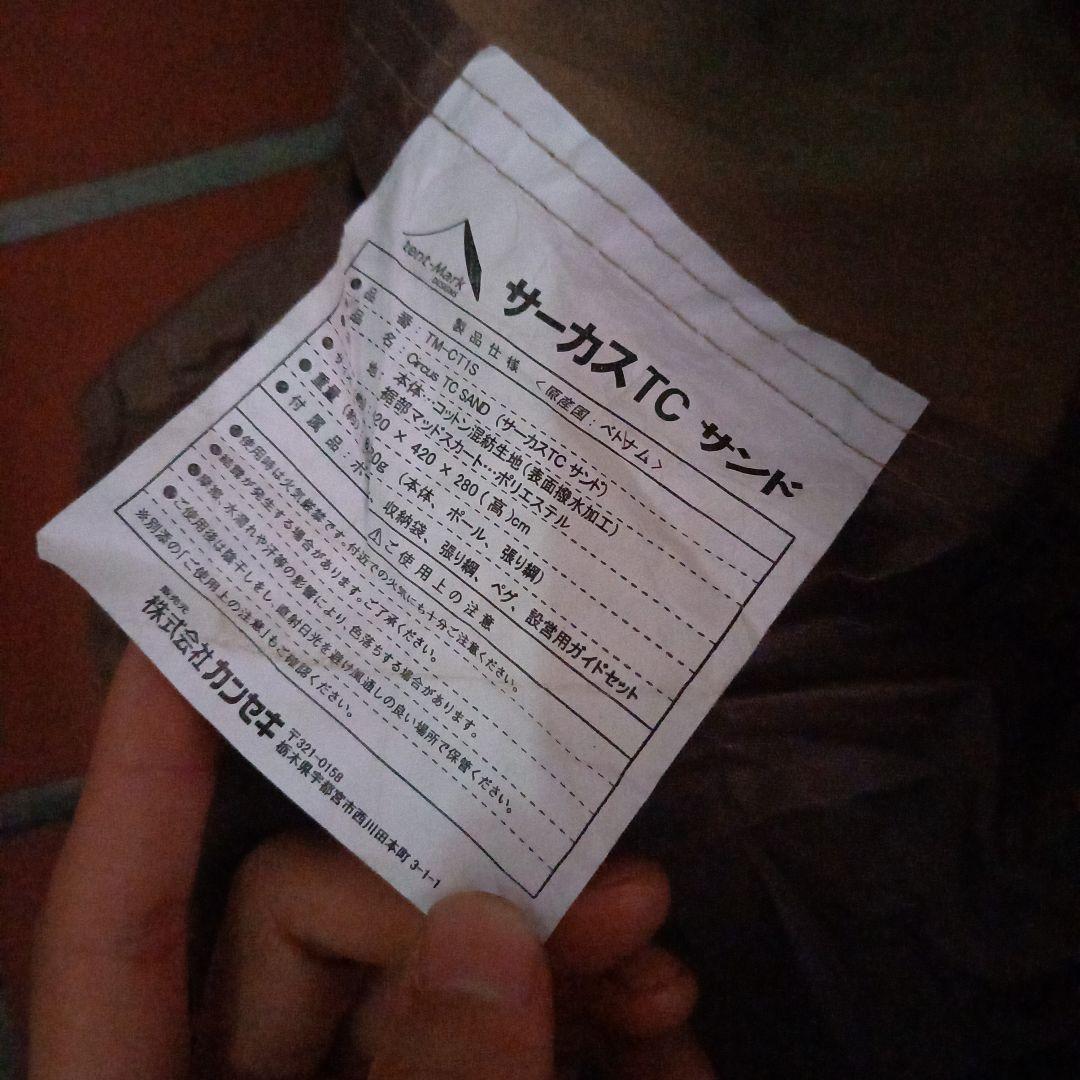 tent-Mark
DESIGNS
サーカスTC サンド
製品仕様 <原産国:ベトナム>
●品 番:TM-CT1S
品 名:Circus TC SAND (サーカスTC サンド)
地 本体:コットン混紡生地(表面撥水加工)
裾部マッドスカート…ポリエステル
●サ 20 × 420 × 280(高)cm
●重量(約) 00g (本体、ポール、張り綱)
●付属品:ポ 収納袋、張り綱、ペグ、設営用ガイドセット
⚠ご使用上の注意
●使用時は火気厳禁です。付近での火気にも十分ご注意ください。
●結露が発生する場合があります。ご了承ください。
●摩擦、水濡れや汗等の影響により、色落ちする場合があります。
●ご使用後は陰干しをし、直射日光を避け風通しの良い場所で保管ください。
※別添の「ご使用上の注意」もご確認ください。
販売元
株式会社カンセキ
〒321-0158
栃木県宇都宮市西川田本町3-1-1